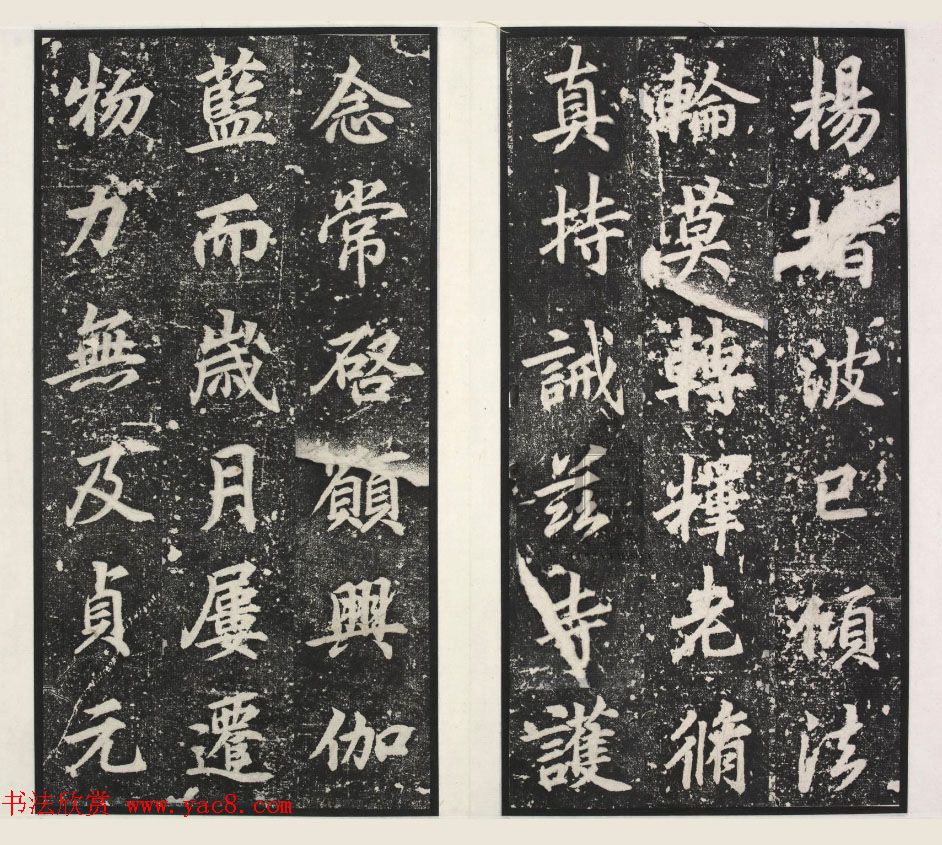 楊㫖波已傾法
輪莫轉擇老脩
真持誡茲寺護
念常啓願興伽
藍而歲月屢遷
物力無及貞元
书法欣赏 www.yac8.com